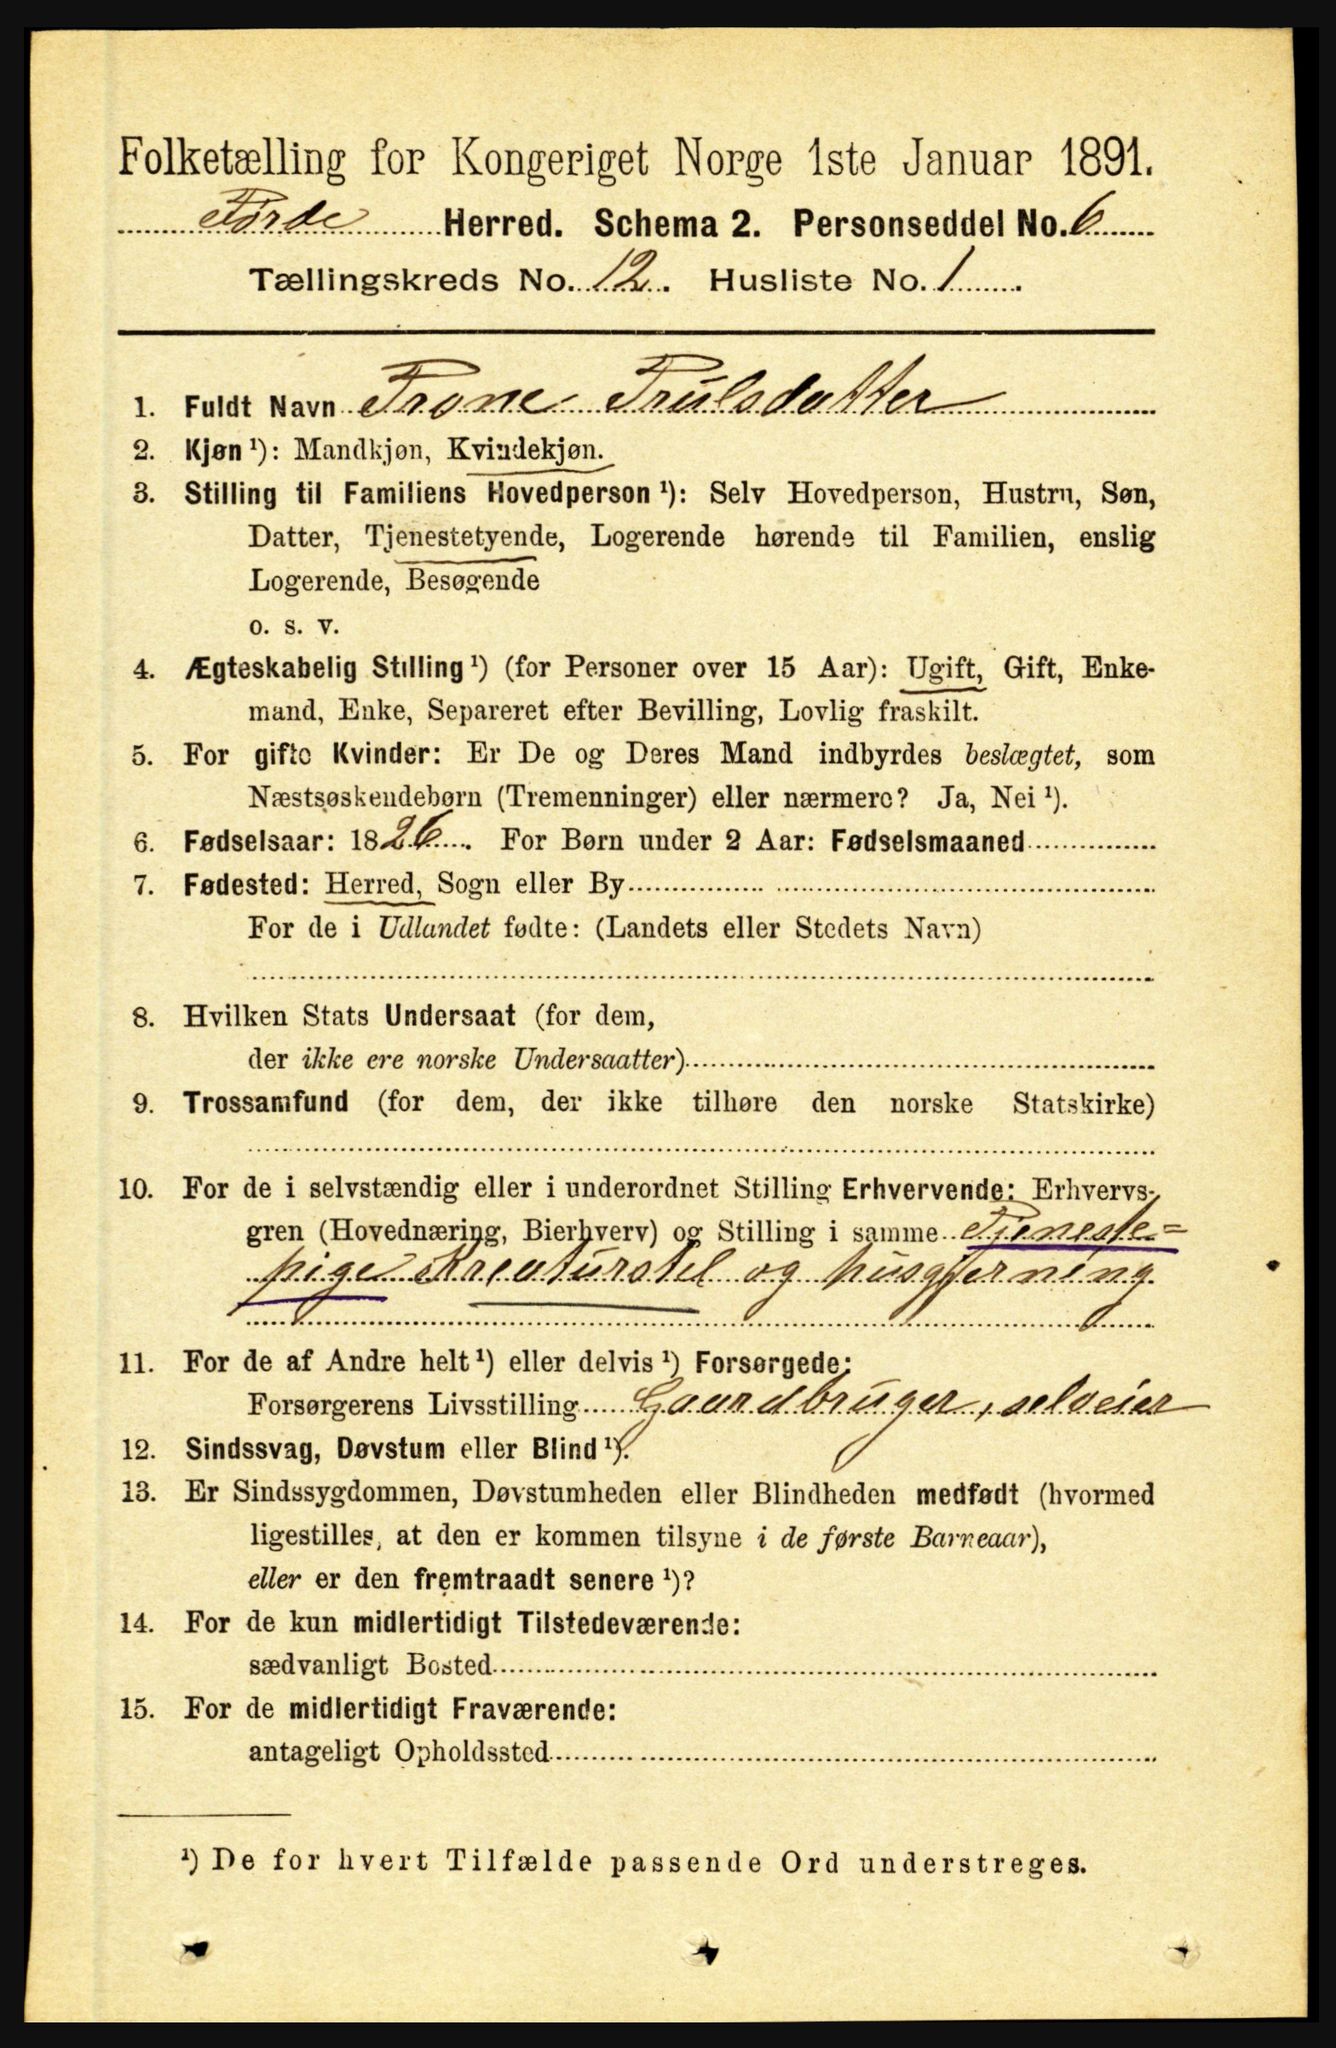 Folketælling for Kongeriget Norge 1ste Januar 1891.
Førde Herred. Schema 2. Personseddel No. 6
Tællingskreds No. 12. Husliste No. 1
1. Fuldt Navn Trone Trulsdatter
2. Kjøn ¹): Mandkjøn, Kvindekjøn.
3. Stilling til Familiens Hovedperson ¹): Selv Hovedperson, Hustru, Søn,
Datter, Tjenestetyende, Logerende hørende til Familien, enslig
Logerende, Besøgende
o. s. v.
4. Ægteskabelig Stilling ¹) (for Personer over 15 Aar): Ugift, Gift, Enke-
mand, Enke, Separeret efter Bevilling, Lovlig fraskilt.
5. For gifte Kvinder: Er De og Deres Mand indbyrdes beslægtet, som
Næstsøskendebørn (Tremenninger) eller nærmere? Ja, Nei ¹).
6. Fødselsaar: 1826. For Børn under 2 Aar: Fødselsmaaned
7. Fødested: Herred, Sogn eller By
For de i Udlandet fødte: (Landets eller Stedets Navn)
8. Hvilken Stats Undersaat (for dem,
der ikke ere norske Undersaatter)
9. Trossamfund (for dem, der ikke tilhøre den norske Statskirke)
10. For de i selvstændig eller i underordnet Stilling Erhvervende: Erhvervs-
gren (Hovednæring, Bierhverv) og Stilling i samme Tjeneste=
pige Kreaturstel og husgjerning
11. For de af Andre helt ¹) eller delvis ¹) Forsørgede:
Forsørgerens Livsstilling Gaardbruger, selveier
12. Sindssvag, Døvstum eller Blind ¹).
13. Er Sindssygdommen, Døvstumheden eller Blindheden medfødt (hvormed
ligestilles, at den er kommen tilsyne i de første Barneaar),
eller er den fremtraadt senere ¹)?
14. For de kun midlertidigt Tilstedeværende:
sædvanligt Bosted
15. For de midlertidigt Fraværende:
antageligt Opholdssted
¹) De for hvert Tilfælde passende Ord understreges.